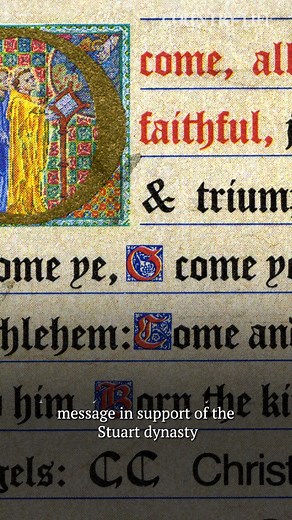 COUNTRY LIFE
O come, all
faithful, j
& trium
ome ye, O come ye
hlehem: Come and
him Born the ki
message in support of the
Stuart dynasty
gels: CC Christ